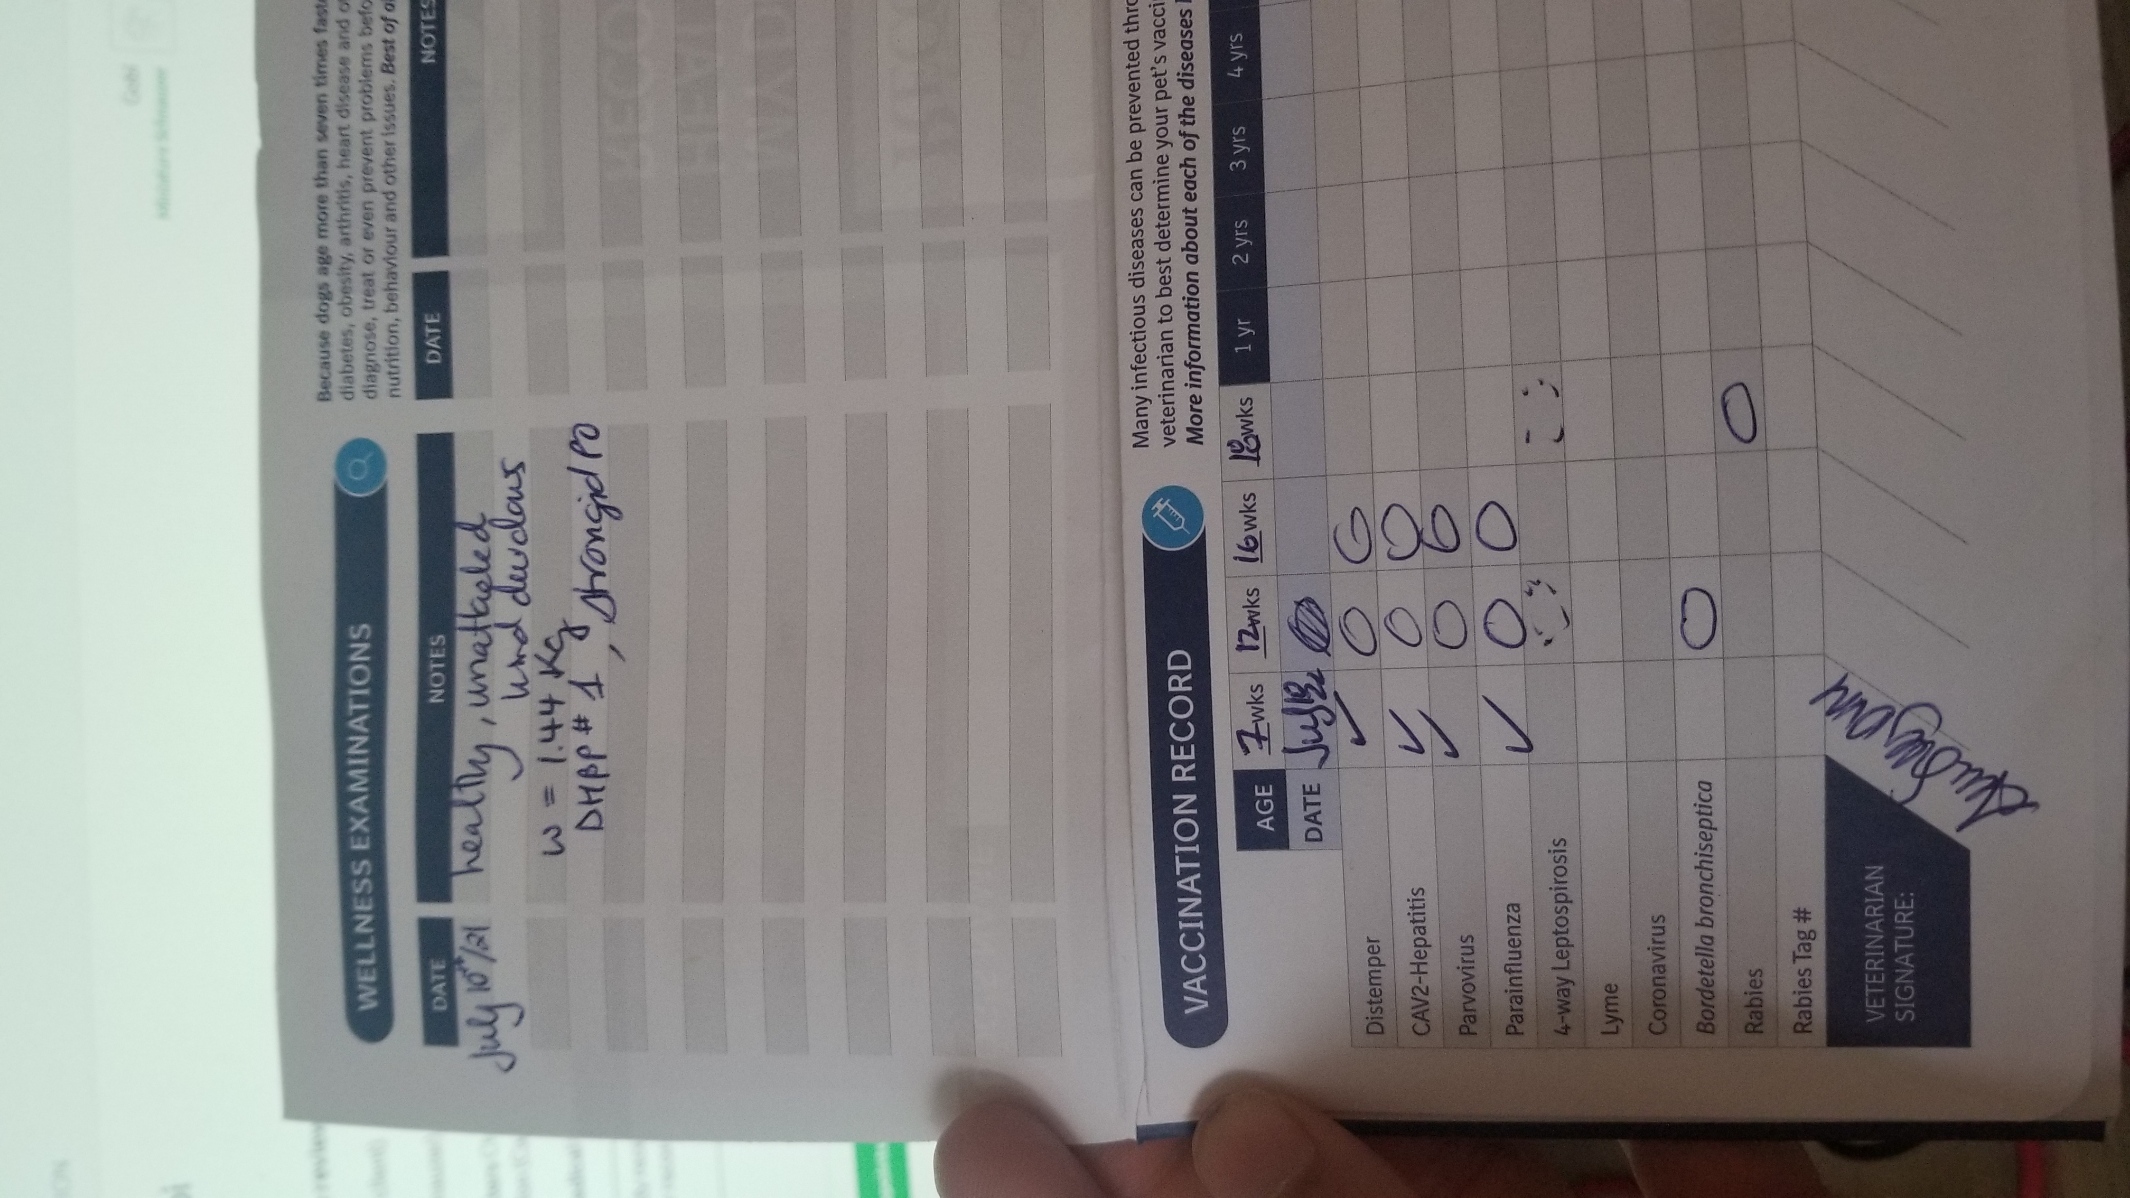 Gobi
Miniature Schnauzer
review
WELLNESS EXAMINATIONS
Because dogs age more than seven times fast
diabetes, obesity, arthritis, heart disease and o
diagnose, treat or even prevent problems befo
nutrition, behaviour and other issues. Best of a
DATE NOTES DATE NOTES
July 10th/21 healthy,
hind dewclaws
w = 1.44 Kg
DHPP # 1, Strongid PO
VACCINATION RECORD
Many infectious diseases can be prevented thro
veterinarian to best determine your pet's vacci
More information about each of the diseases
AGE 7 wks 12 wks 16 wks 18 wks 1 yr 2 yrs 3 yrs 4 yrs
DATE
Distemper ✓ O O
CAV2-Hepatitis ✓ O O
Parvovirus ✓ O O
Parainfluenza ✓ O O
4-way Leptospirosis
Lyme
Coronavirus
Bordetella bronchiseptica O
Rabies O
Rabies Tag #
VETERINARIAN
SIGNATURE: